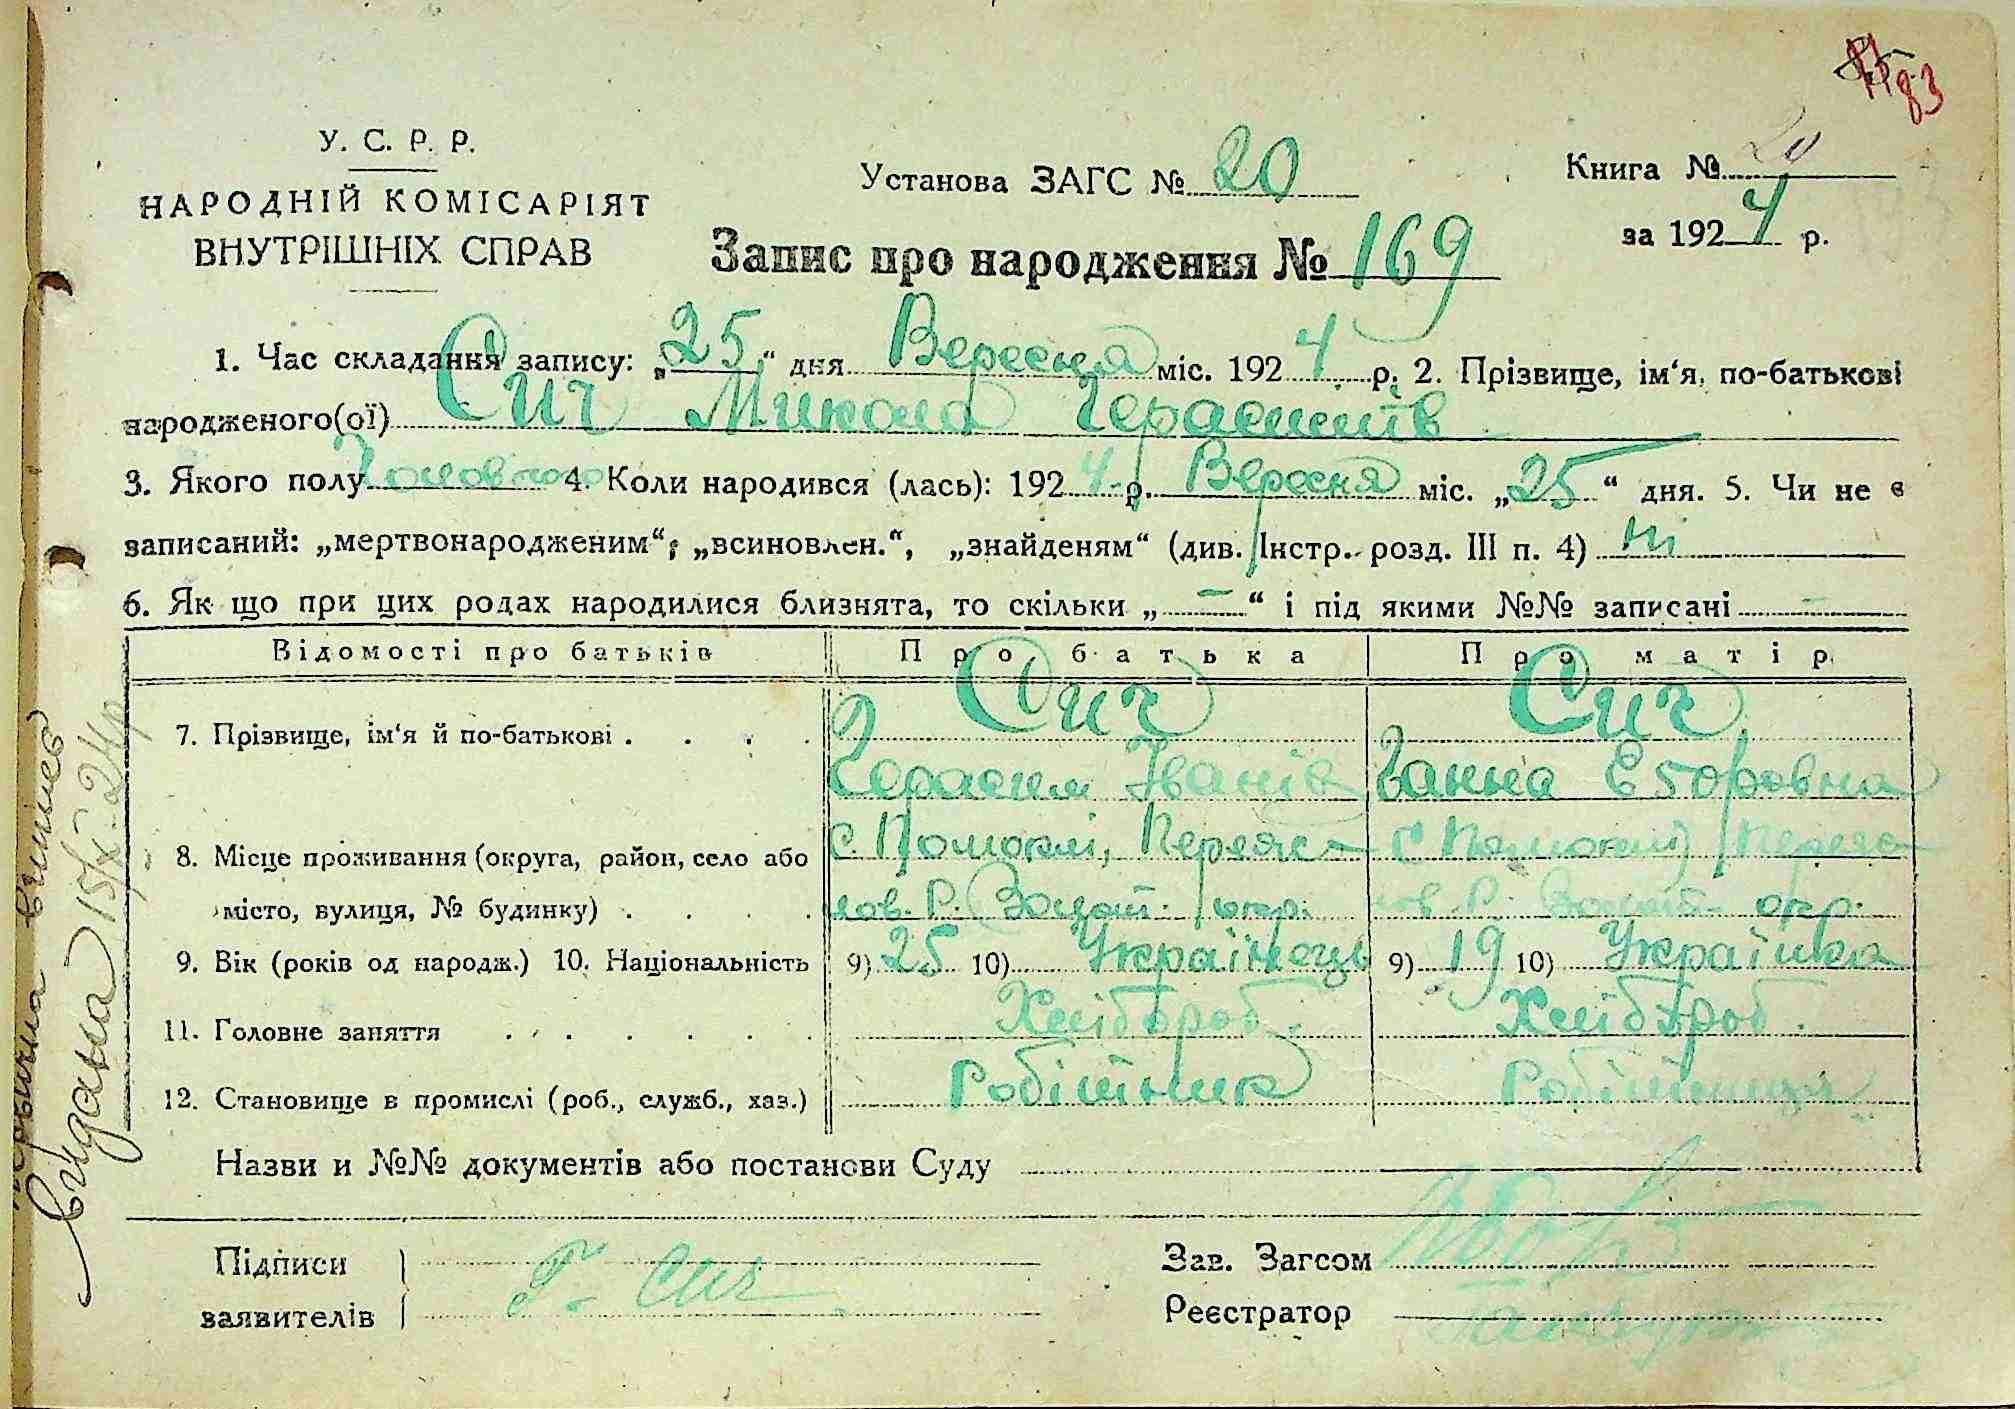 83
У. С. Р. Р.
НАРОДНІЙ КОМІСАРІЯТ
ВНУТРІШНІХ СПРАВ
Установа ЗАГС № 20
Книга № 20
за 1924 р.
Запис про народження № 169
1. Час складання запису: „25“ дня Вересня міс. 1924 р. 2. Прізвище, ім‘я, по-батькові
народженого(ої) Сич Микола Герасимів
3. Якого полу Чоловічого 4. Коли народився (лась): 1924 р. Вересня міс. „25“ дня. 5. Чи не є
записаний: „мертвонародженим“, „всиновлен.“, „знайденям“ (див. Інстр. розд. III п. 4) Ні
6. Як що при цих родах народилися близнята, то скільки „ — “ і під якими №№ записані —
Відомості про батьків Про батька Про матір
7. Прізвище, ім‘я й по-батькові . . . . Сич Сич
Герасим Іванів Ганна Єгоровна
8. Місце проживання (округа, район, село або с. Помоклі, Переяс- с. Помоклі, Переяс-
місто, вулиця, № будинку) . . . . лов. Р. Золот. окр. лов. Р. Золот. окр.
9. Вік (років од народж.) 10. Національність 9) 25 10) Українець 9) 19 10) Українка
11. Головне заняття . . . . . . Хлібороб. Хлібороб.
12. Становище в промислі (роб., служб., хаз.) Робітник Робітниця
Назви и №№ документів або постанови Суду
Підписи
заявителів
Г. Сич
Зав. Загсом
Реєстратор
виписка
видана 15/X-24р.